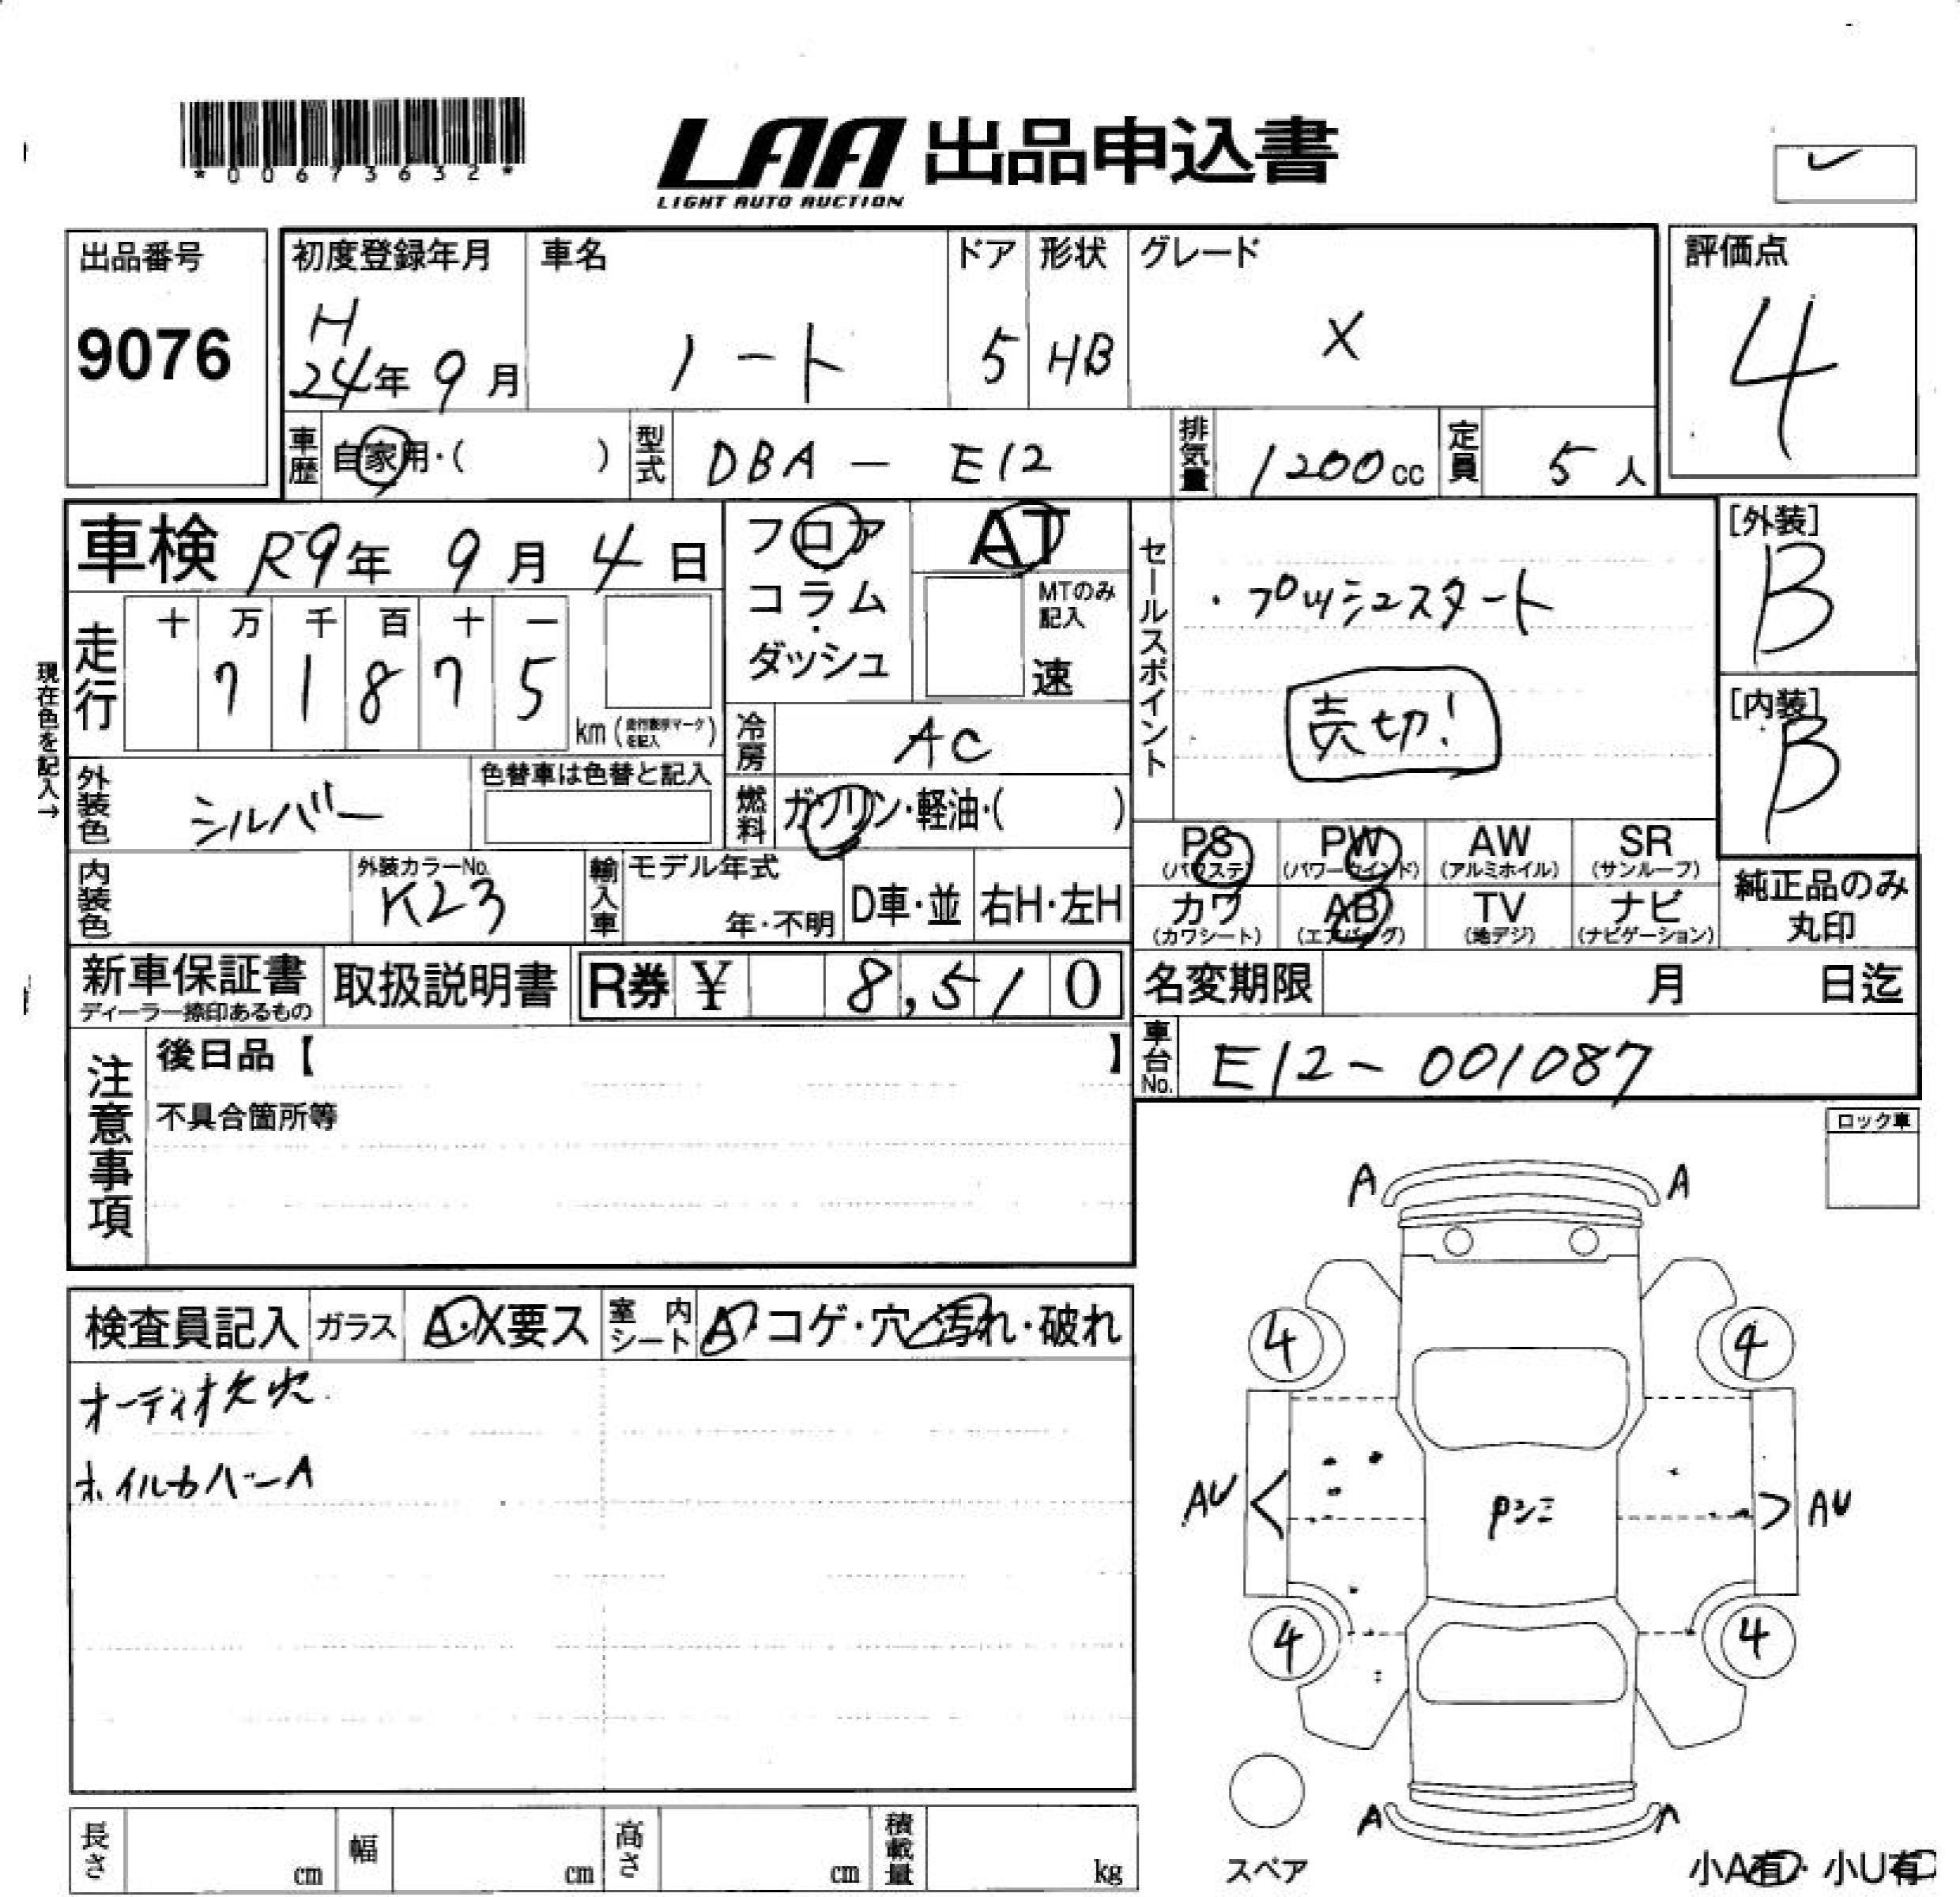 *00673632*
LAA 出品申込書
LIGHT AUTO AUCTION
出品番号
9076
初度登録年月
H
24年 9月
車名
ノート
ドア
5
形状
HB
グレード
X
評価点
4
車歴 自家用・( )
型式 DBA - E12
排気量 1200cc
定員 5人
車検 R9年 9月 4日
フロア
コラム
・
ダッシュ
AT
MTのみ
記入
速
セールスポイント
・プッシュスタート
売切!
[外装]
B
[内装]
B
現在色を記入→
走行
十 万 千 百 十 一
7 1 8 7 5
km (走行表示マークを記入)
冷房 AC
外装色 シルバー
色替車は色替と記入
燃料 ガソリン・軽油・( )
PS (パワステ)
PW (パワーウインド)
AW (アルミホイル)
SR (サンルーフ)
カワ (カワシート)
AB (エアバッグ)
TV (地デジ)
ナビ (ナビゲーション)
純正品のみ
丸印
内装色
外装カラーNo.
K23
輸入車
モデル年式
年・不明
D車・並
右H・左H
新車保証書
ディーラー捺印あるもの
取扱説明書
R券 ¥ 8,510
名変期限 月 日迄
車台No. E12-001087
注意事項
後日品【 】
不具合箇所等
ロック車
検査員記入
ガラス A・X要ス
室内シート A・コゲ・穴・汚れ・破れ
オーディオ欠吹
ホイルカバーA
A A
4 4
AU AU
Pシミ
4 4
A A
スペア
小A有・小U有
長さ cm
幅 cm
高さ cm
積載量 kg